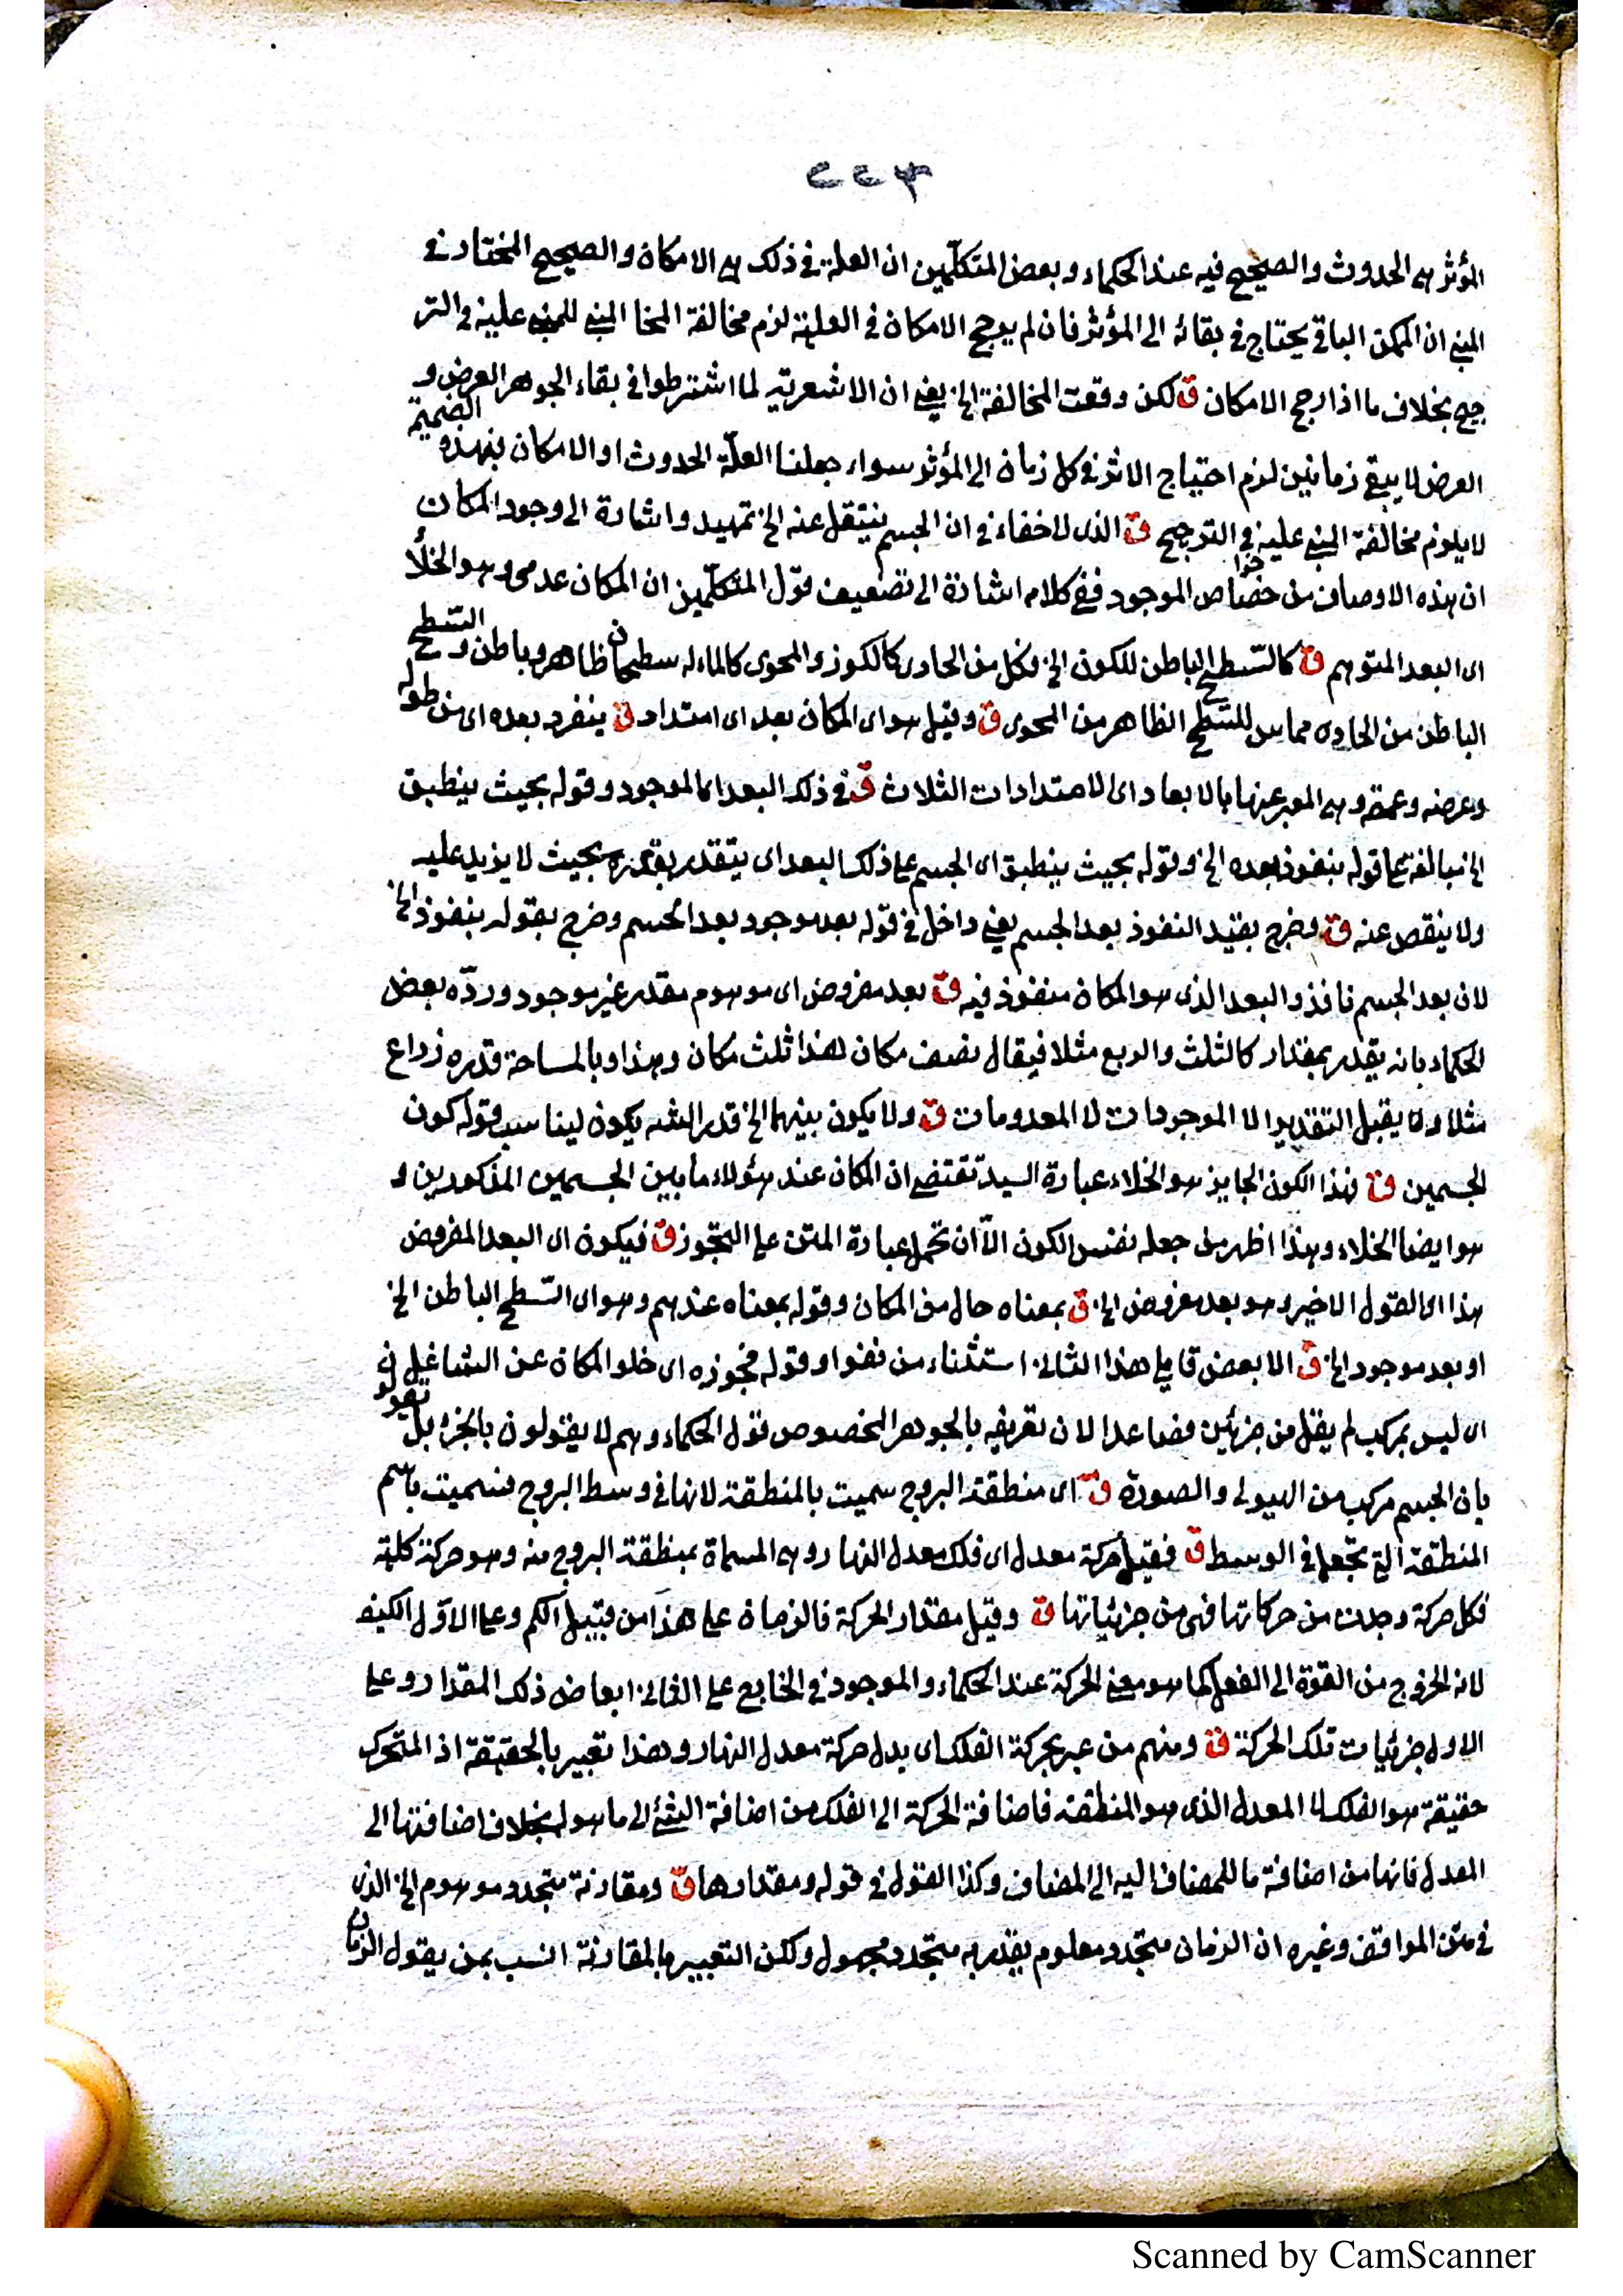 ٤٢٢
المؤثر هى الحدوث والصحيح فيه عند الحكماء وبعض المتكلمين ان العلة فى ذلك هى الامكان والصحيح المختار فى
المبنى ان الممكن الباقى يحتاج فى بقائه الى المؤثر فان لم يرجح الامكان فى العلية لزم مخالفة المخا المبنى للمبنى عليه فى التر
جيح بخلاف ما اذا رجح الامكان ق لكن وقعت المخالفة الخ يعنى ان الاشعرية لما اشترطوا فى بقاء الجوهر العرض و
العرض لا يبقى زمانين لزم احتياج الاثر فى كل زمان الى المؤثر سواء جعلنا العلّة الحدوث او الامكان فبهذه الضميمة
لا يلزم مخالفة المبنى عليه فى الترجيح ق الذى لا خفاء فى ان الجسم ينتقل عنه الخ تمهيد واشارة الى وجود المكان
ان هذه الاوصاف من خواص الموجود ففى كلامه اشارة الى تضعيف قول المتكلمين ان المكان عدمى وهو الخلأ
اى البعد المتوهم ق كالسّطح الباطن للكون الخ فكل من الحاوى كالكوز والمحوى كالماء له سطحان ظاهر وباطن والسّطح
الباطن من الحاوى مماس للسّطح الظاهر من المحوى ق وقيل هو اى المكان بعد اى امتداد ق ينفرد بعده اى من طوله
وعرضه وعمقه وهى المعبر عنها بالابعاد اى الامتدادات الثلاث ق فى ذلك البعد اى الموجود وقوله بحيث ينطبق
الخ مبالغة على قوله بنفوذ بعده الخ وقوله بحيث ينطبق اى الجسم على ذلك البعد اى يتقدر بقدره بحيث لا يزيد عليه
ولا ينقص عنه ق وخرج بقيد النفوذ بعد الجسم يعنى داخل فى قوله بعد موجود بعد الجسم وخرج بقوله بنفوذ الخ
لان بعد الجسم نافذ والبعد الذى هو المكان منفوذ فيه ق بعد مفروض اى موهوم مقدر غير موجود وردّه بعض
الحكماء بانه يقدر بمقدار كالثلث والربع مثلا فيقال نصف مكان هذا ثلث مكان وهذا وبالمساحة قدره ذراع
مثلا ولا يقبل التقدير الا الموجودات لا المعدومات ق ولا يكون بينهما الخ قدر الشه يكون ليناسب قوله كون
الجسمين ق فهذا الكون الجايز هو الخلاء عبارة السيد تقتضى ان المكان عند هؤلاء ما بين الجسمين المذكورين و
هو ايضا الخلاء وهذا اظهر من جعله نفس الكون الّا ان تحمل عبارة المتن على التجوز ق فيكون اى البعد المفروض
هذا اى القول الاخير وهو بعد مفروض الخ ق بمعناه حال من المكان وقوله بمعناه عندهم وهو اى السّطح الباطن الخ
او بعد موجود الخ ق الا بعض قايلى هذا الثانى استثناء من نفوا وقوله فجوزه اى خلو المكان عن الشاغل ق
اى ليس بمركب لم يقل من جزئين فصاعدا لان تعريفه بالجوهر المخصوص قول الحكماء وهم لا يقولون بالجزء بل يقولو
بان الجسم مركب من الهيولى والصورة ق اى منطقة البروج سميت بالمنطقة لانها فى وسط البروج فسميت باسم
المنطقة التى تجعل فى الوسط ق فقيل حركة معدل اى فلك معدل النهار وهى المسماة بمنطقة البروج منه وهو حركة كلية
فكل حركة وجدت من حركاتها فهى من جزئياتها ق وقيل مقدار الحركة فالزمان على هذا من قبيل الكم وعلى الاوّل الكيف
لانه الخروج من القوة الى الفعل كما هو معنى الحركة عند الحكماء والموجود فى الخارج على الثانى ابعاض ذلك المقدار وعلى
الاول جزئيات تلك الحركة ق ومنهم من عبر بحركة الفلك اى بدل حركة معدل النهار وهذا تعبير بالحقيقة اذ المتحرك
حقيقة هو الفلك لا المعدل الذى هو المنطقة فاضافة الحركة الى الفلك من اضافة الشئ الى ما هو له بخلاف اضافتها الى
المعدل فانها من اضافة ما للمضاف اليه الى المضاف وكذا القول فى قوله ومقدارها ق ومقارنة متجدد موهوم الخ الذى
فى متن المواقف وغيره ان الزمان متجدد معلوم يقدر به متجدد مجهول ولكن التعبير بالمقارنة انسب بمن يقول الزمان
Scanned by CamScanner